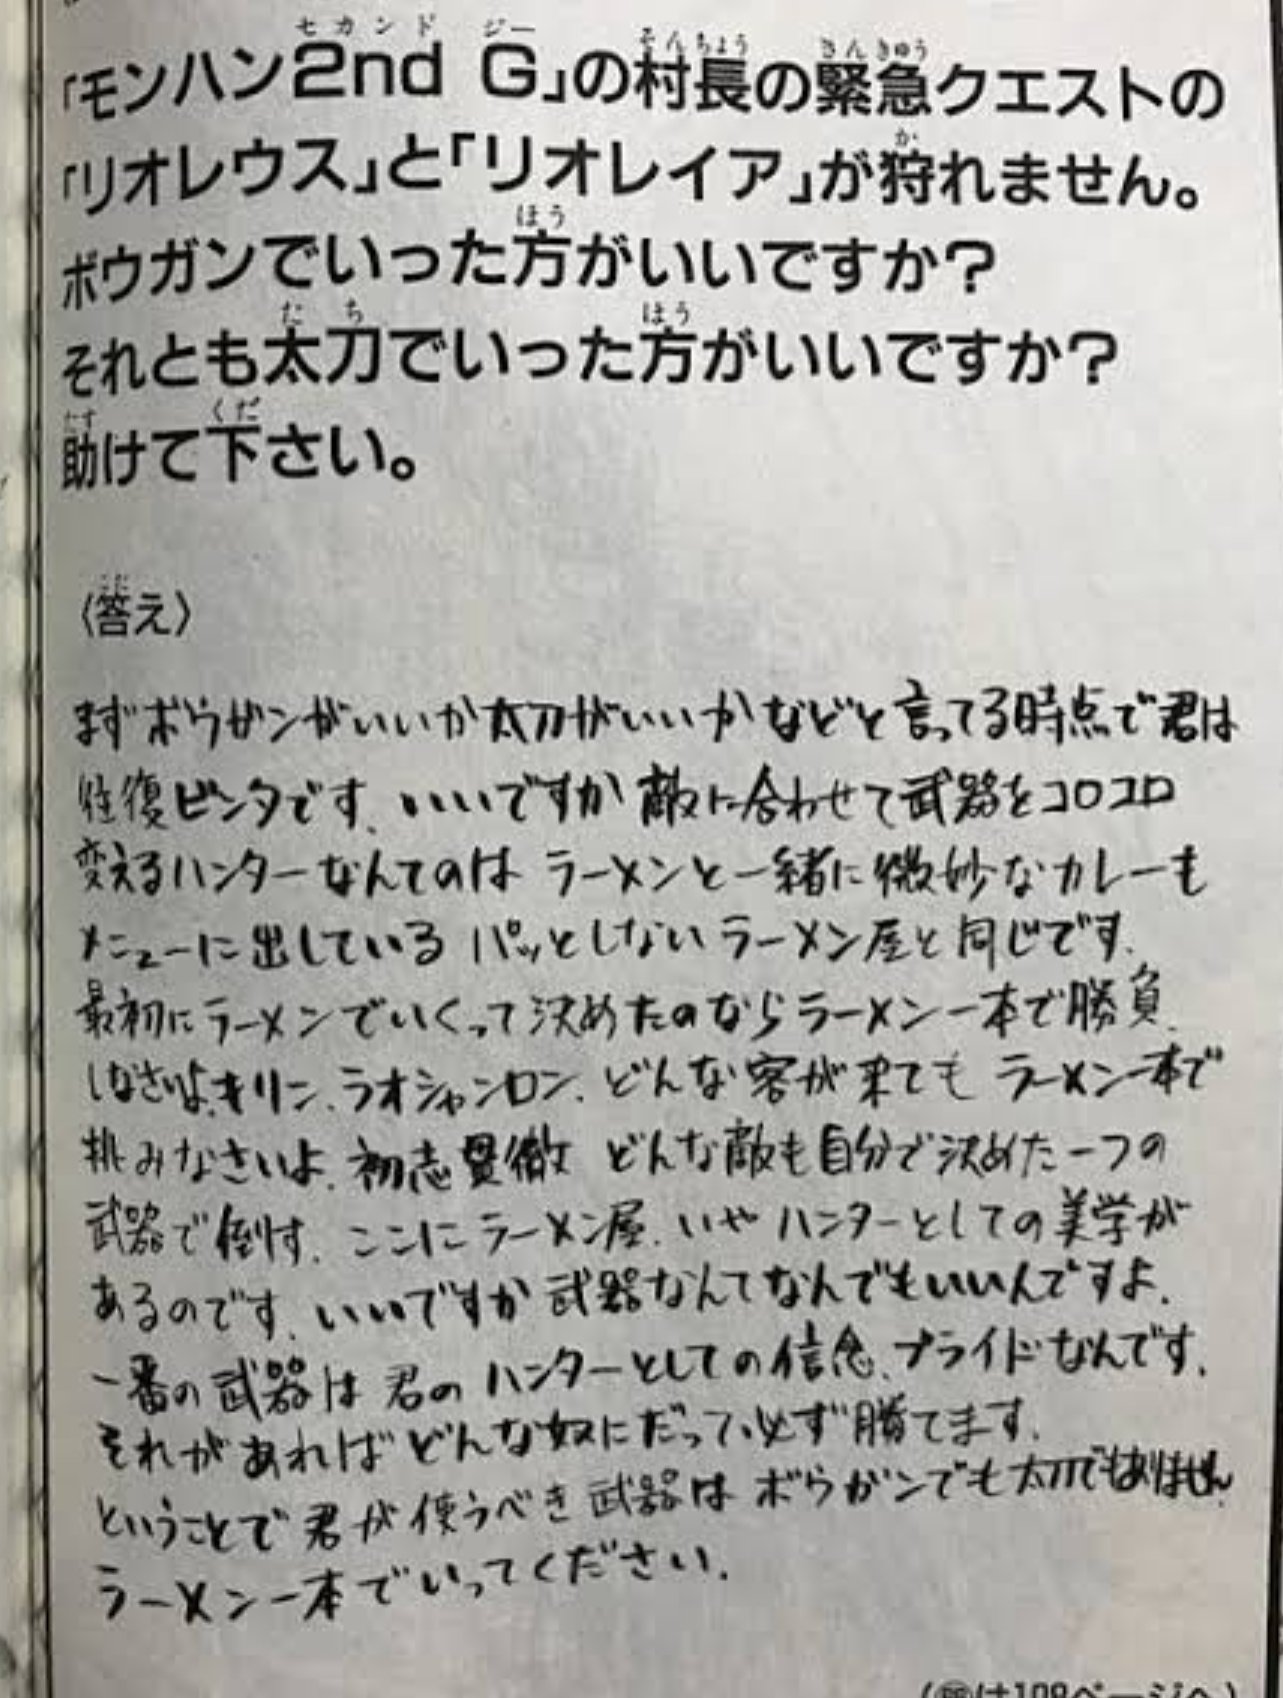 「モンハン2nd G」の村長の緊急クエストの
「リオレウス」と「リオレイア」が狩れません。
ボウガンでいった方がいいですか？
それとも太刀でいった方がいいですか？
助けて下さい。
〈答え〉
まずボウガンがいいか太刀がいいかなどと言ってる時点で君は
往復ビンタです、いいですか 敵に合わせて武器をコロコロ
変えるハンターなんてのは ラーメンと一緒に微妙なカレーも
メニューに出している パッとしないラーメン屋と同じです.
最初にラーメンでいくって決めたのならラーメン一本で勝負
しなさいよ、キリン、ラオシャンロン、どんな客が来ても ラーメン一本で
挑みなさいよ、初志貫徹 どんな敵も自分で決めた一つの
武器で倒す. ここにラーメン屋、いや ハンターとしての美学が
あるのです、いいですか 武器なんてなんでもいいんですよ.
一番の武器は 君の ハンターとしての信念、プライドなんです.
それがあればどんな奴にだって必ず勝てます.
ということで君が使うべき武器は ボウガンでも太刀でもありません、
ラーメン一本でいってください.
は108ページへ)